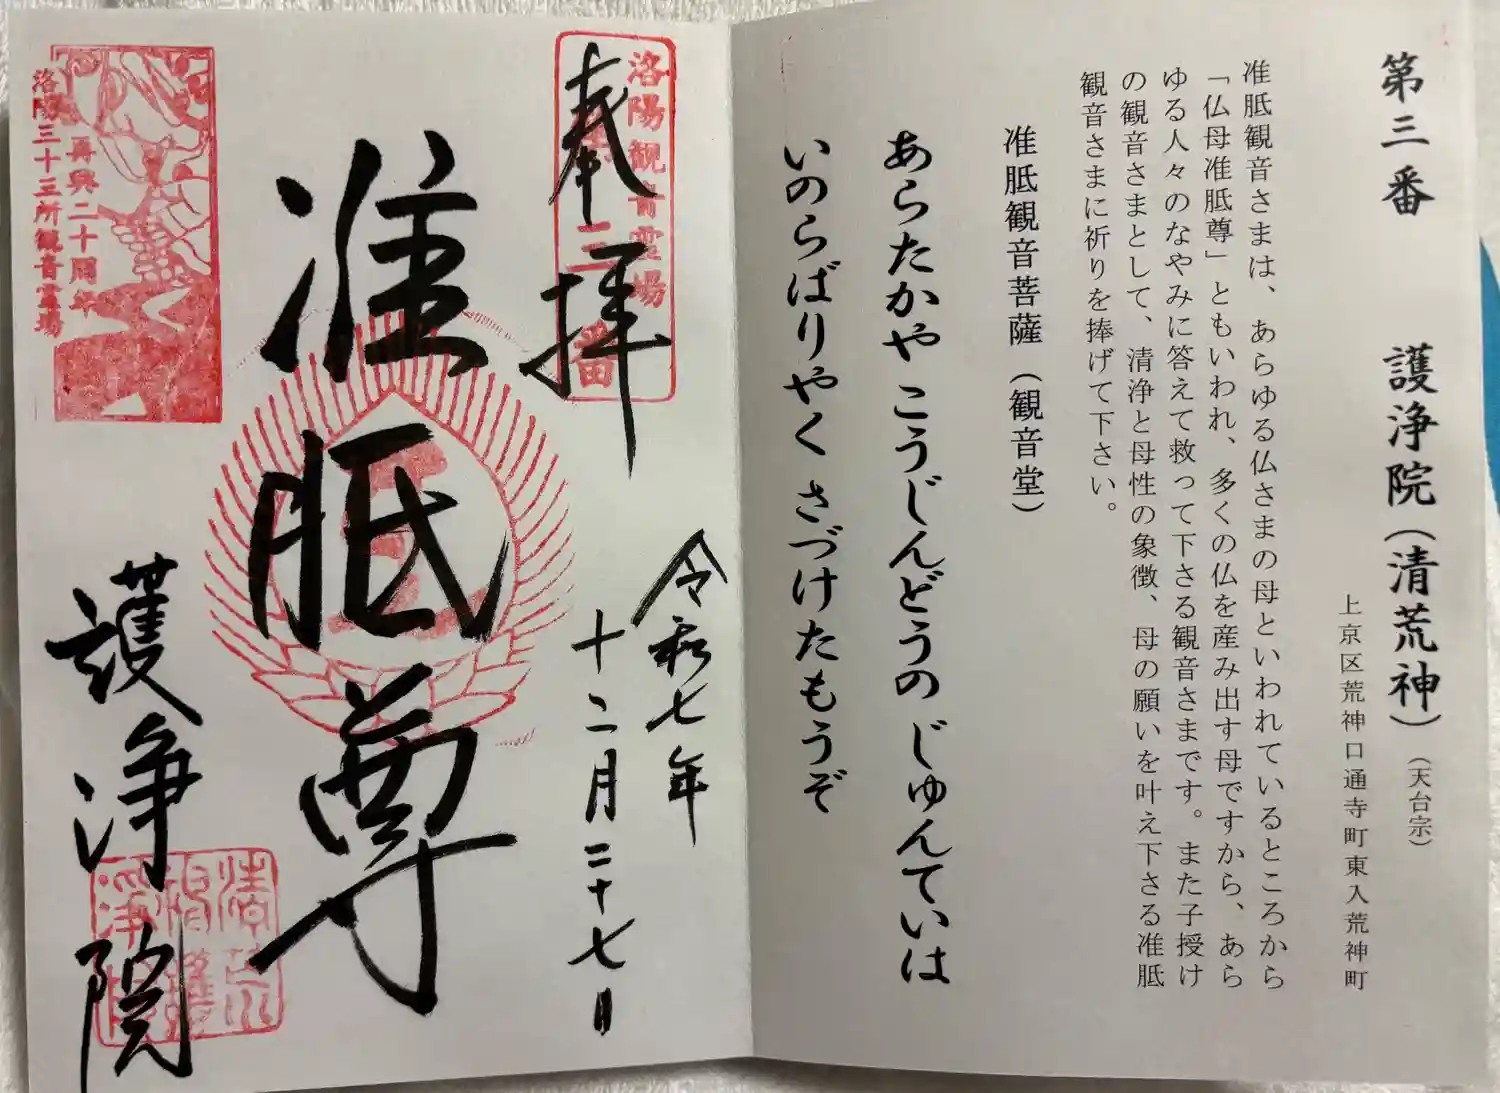 第三番 護浄院(清荒神)(天台宗)
上京区荒神口通寺町東入荒神町
准胝観音さまは、あらゆる仏さまの母といわれているところから
「仏母准胝尊」ともいわれ、多くの仏を産み出す母ですから、あら
ゆる人々のなやみに答えて救って下さる観音さまです。また子授け
の観音さまとして、清浄と母性の象徴、母の願いを叶え下さる准胝
観音さまに祈りを捧げて下さい。
准胝観音菩薩(観音堂)
あらたかや こうじんどうの じゅんていは
いのらばりやく さづけたもうぞ
洛陽観音霊場
第三番
奉拝
令和七年
十二月二十七日
准胝尊
護浄院
再興二十周年
洛陽三十三所観音霊場